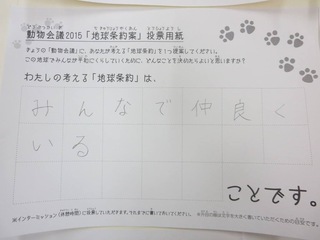 動物会議2015「地球条約案」投票用紙
きょうの「動物会議」に、あなたが考える「地球条約」を1つ提案してください。
この地球でみんなが平和にくらしていくために、どんなことを決めたらよいと思いますか?
わたしの考える「地球条約」は、
みんなで仲良く
いる
ことです。
※インターミッション(休憩時間)に投票していただきます。うたまでに書いておいてください。